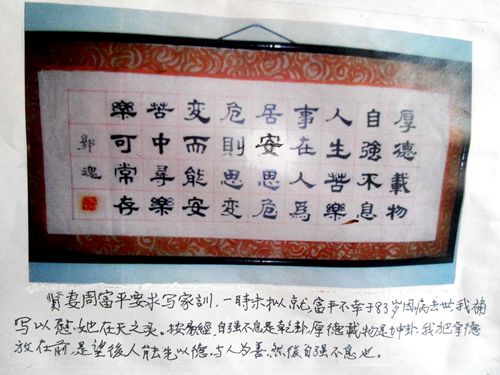 厚德載物
自強不息
人生苦樂
事在人爲
居安思危
危則思変
変而能安
苦中尋樂
樂可常存
贤妻周富平要求写家訓，一時未拟就，富平不幸于83岁因病去世，我補
写以慰她在天之灵。按易經自强不息是乾卦，厚德載物是坤卦，我把厚德
放在前，是望後人能先以德，与人为善，然後自强不息也。